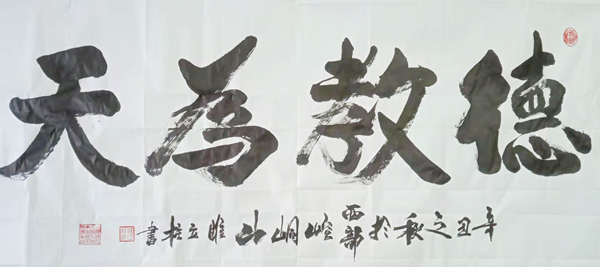 德教為天
辛丑之秋於西部崆峒山 立柱書